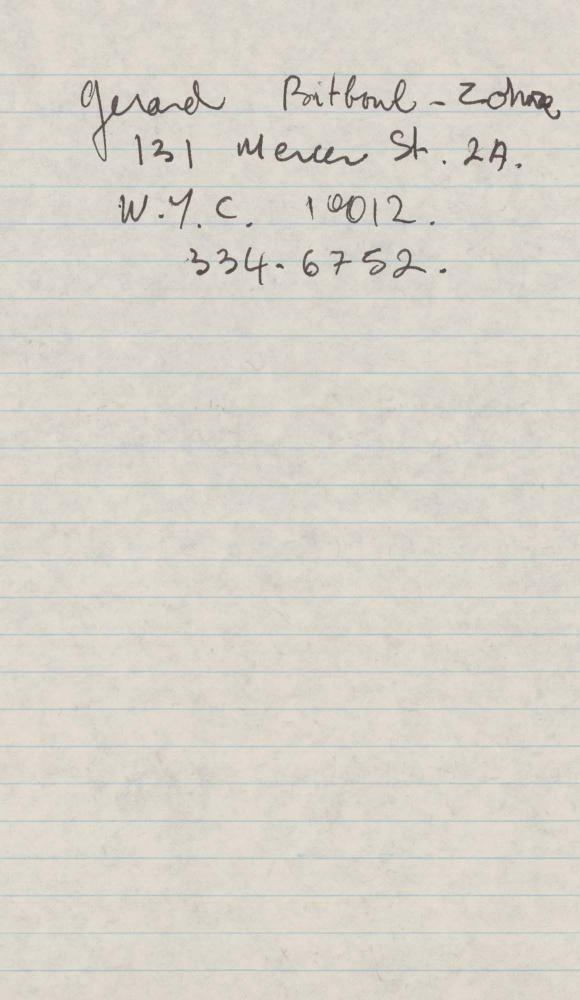 Gerard Bitboul - Zohra
131 Mercer St. 2A.
N.Y.C. 10012.
334-6752.